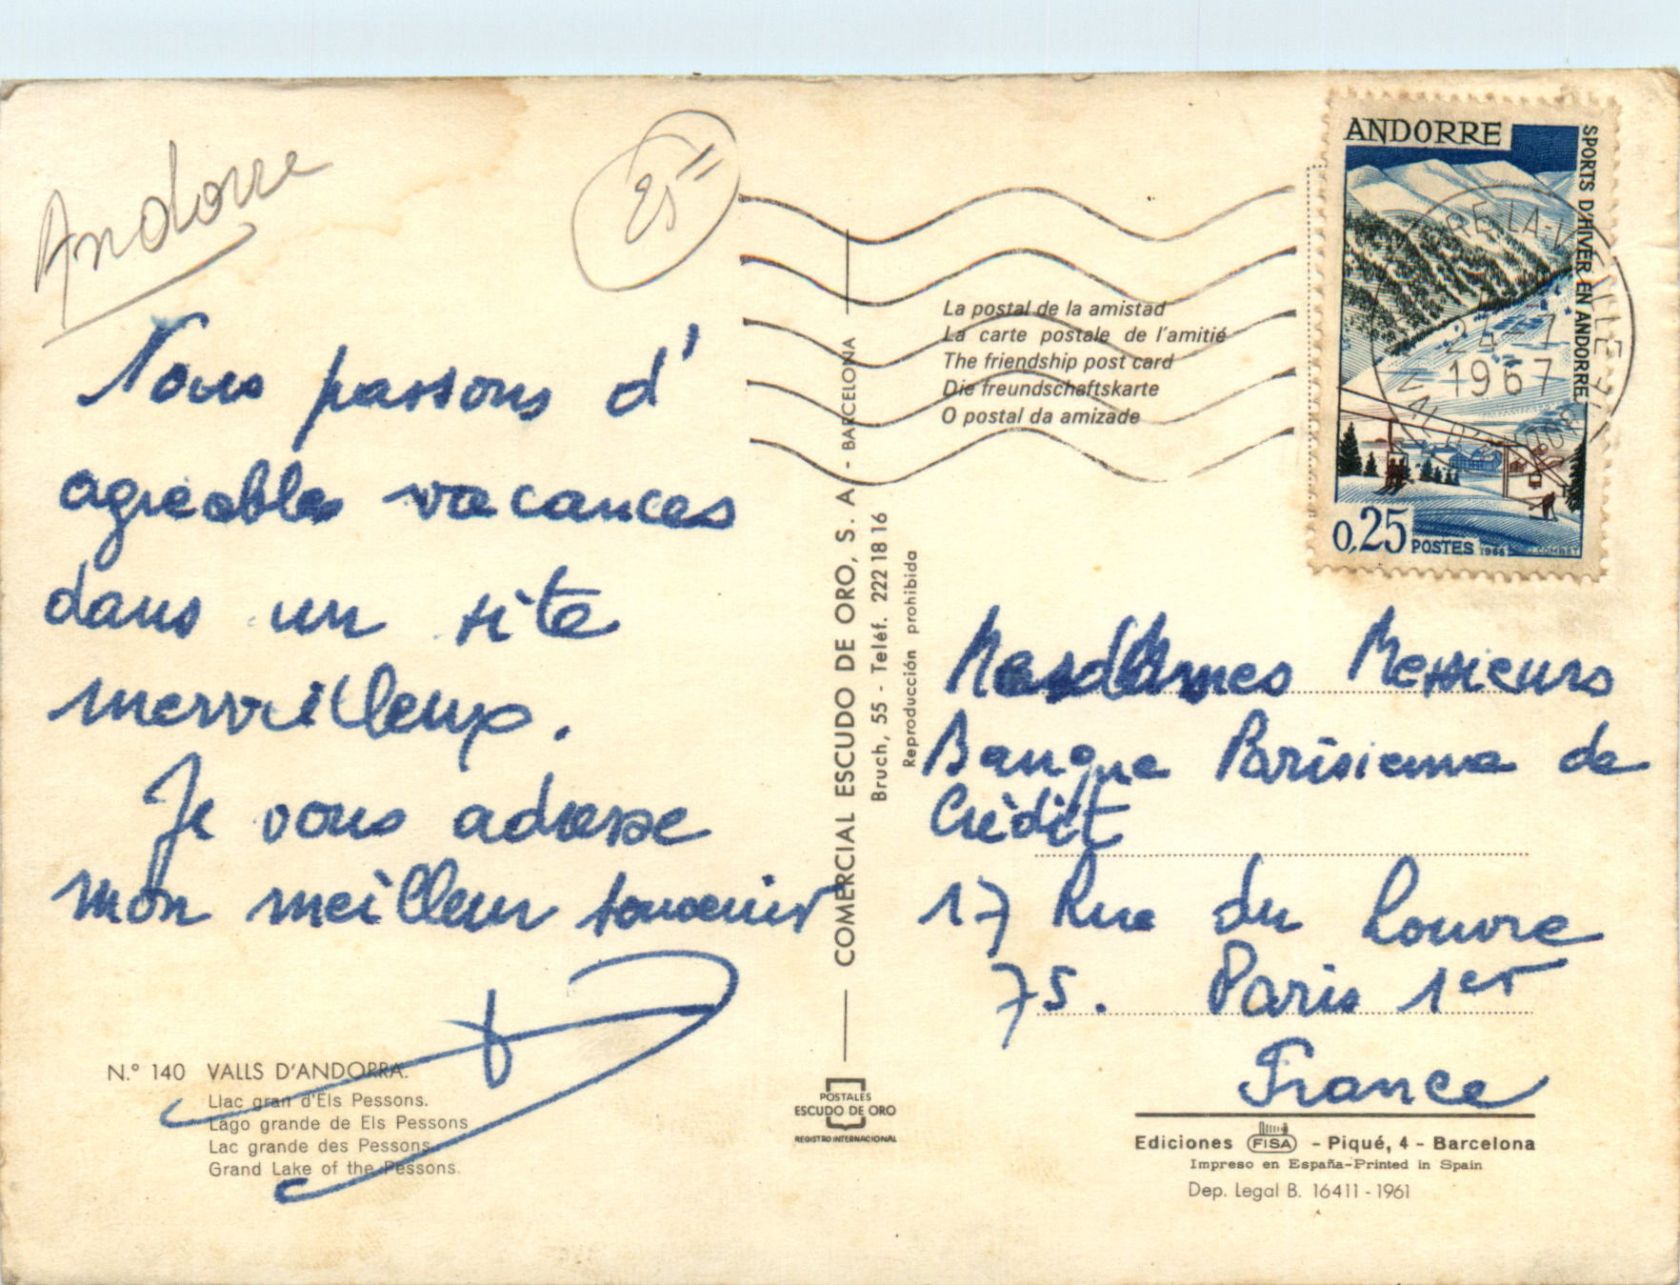 Andorre
Nous passons d'
agréables vacances
dans un site
merveilleux.
Je vous adresse
mon meilleur souvenir
N.º 140 VALLS D'ANDORRA.
Llac gran d'Els Pessons.
Lago grande de Els Pessons
Lac grande des Pessons.
Grand Lake of the Pessons.
COMERCIAL ESCUDO DE ORO, S. A. - BARCELONA
Bruch, 55 - Teléf. 222 18 16
Reproducción prohibida
POSTALES
ESCUDO DE ORO
REGISTRO INTERNACIONAL
La postal de la amistad
La carte postale de l'amitié
The friendship post card
Die freundschaftskarte
O postal da amizade
ANDORRE
SPORTS D'HIVER EN ANDORRE
0,25 POSTES 1966 COMBET
1967
Mesdames Messieurs
Banque Parisienne de
Crédit
17 Rue du Louvre
75. Paris 1er
France
Ediciones FISA - Piqué, 4 - Barcelona
Impreso en España-Printed in Spain
Dep. Legal B. 16411 - 1961